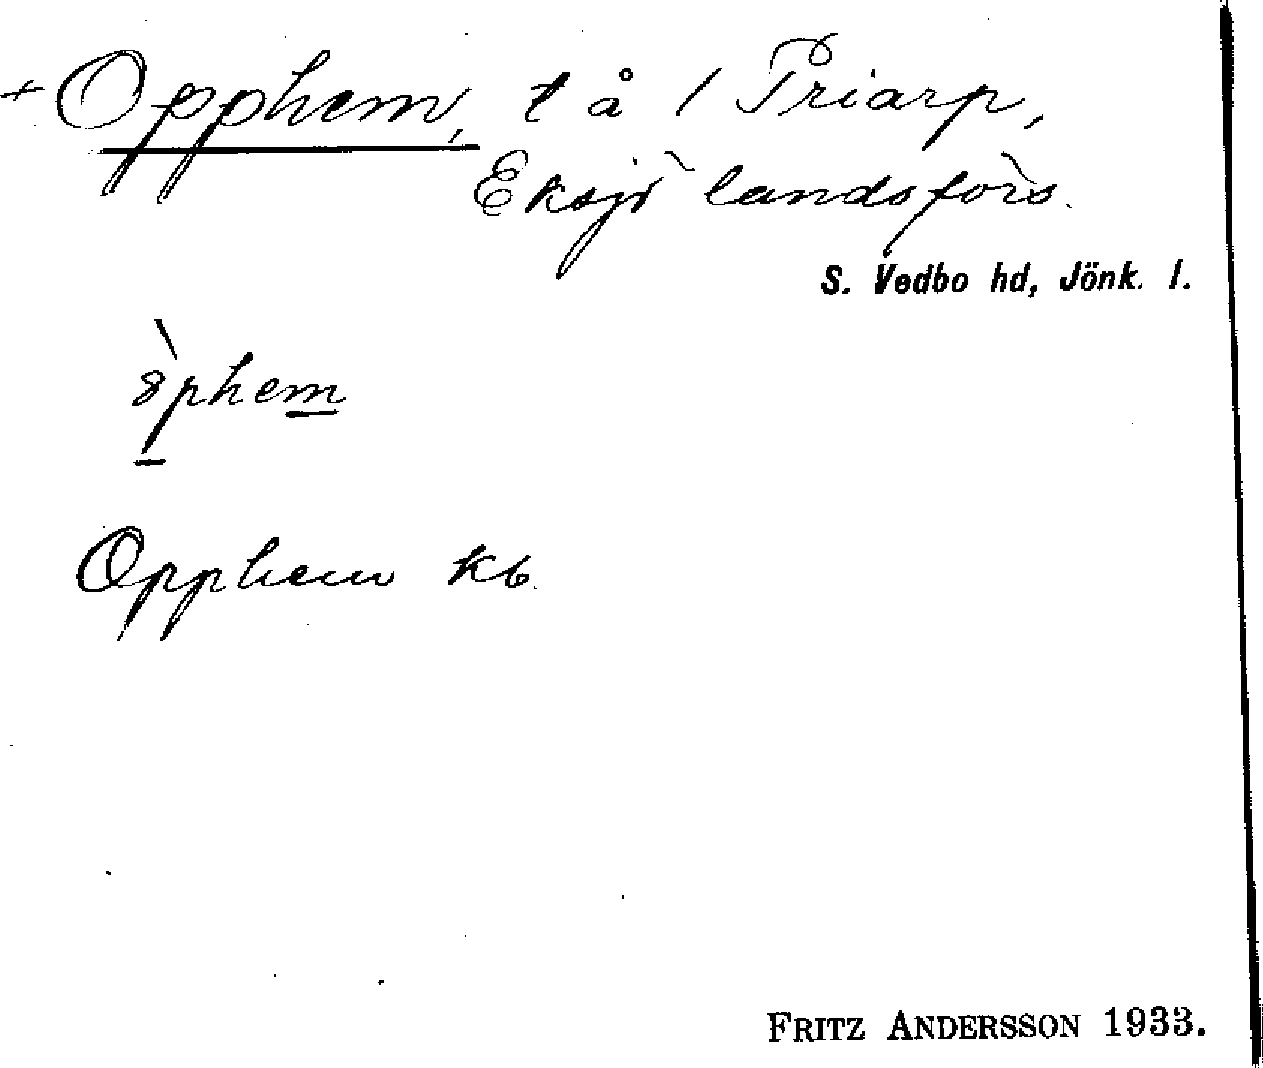 + Opphem, t å 1 Priarp,
Eksjö landsförs.
S. Vedbo hd, Jönk. l.
òphem
Opphem kb.
FRITZ ANDERSSON 1933.